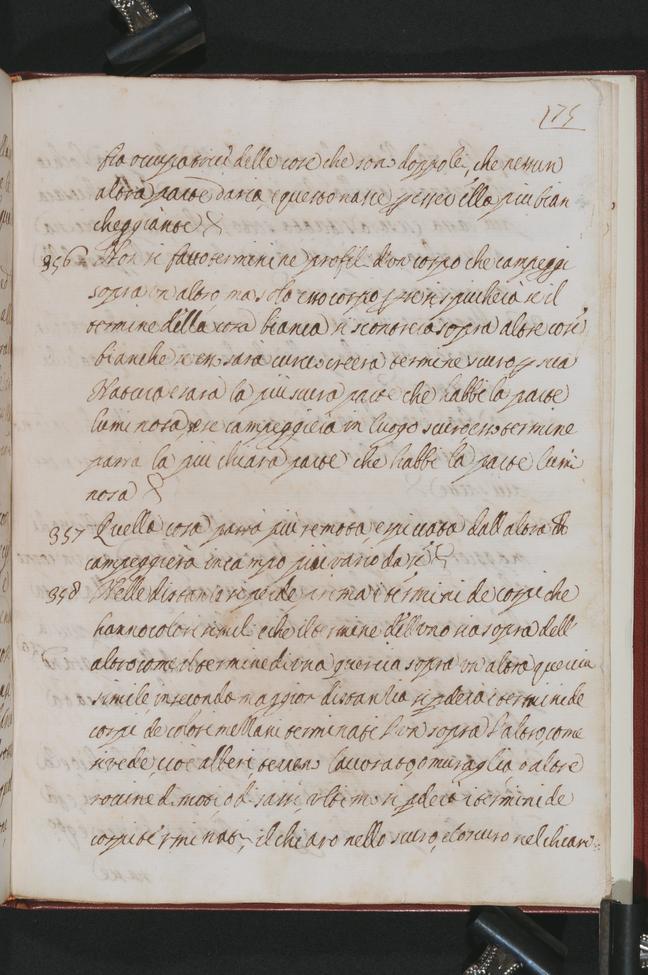 175
sia occupatrici delle cose che son doppo lei, che nessun
altra parte daria, e questo nasce per esser ella piu bian
cheggiante
356 Non si facci termine ne profil d'un corpo che campeggi
sopra un altro, ma solo esso corpo per se si spicherà se il
termine della cosa bianca si scontrerà sopra altre cose
bianche se esso sara curvo creera termine scuro per sua
Natura e sara la piu scura parte che habbi la parte
luminosa, e se campeggierà in luogo scuro esso termine
parra la piu chiara parte che habbi la parte lumi
nosa
357 Quella cosa parra piu remota, e spiccata dall'altra ch
campeggierà in campo piu vario da se
358 Nelle distantie si perde prima i termini de corpi che
hanno colori simili e che il termine dell'uno sia sopra dell'
altro come il termine di una quercia sopra un altra quercia
simile, in secondo maggior distantia si perdera i termini de
corpi de colori mezzani terminati l'un sopra l'altro, come
si vede cioè alberi, terreno lavorato, o muraglia, o altre
rovine di monti o di sassi, ultimo si perderà i termini de
corpi terminati, il chiaro nello scuro, e lo scuro nel chiaro